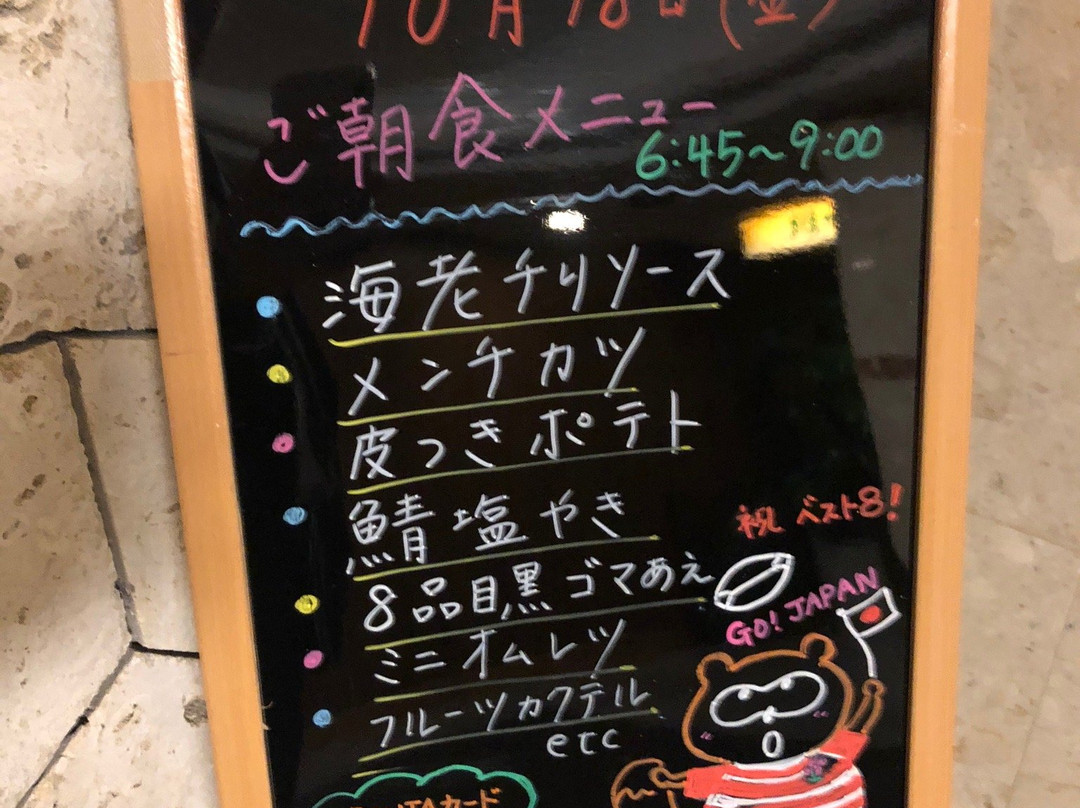 10月18日(金)
ご朝食メニュー
6:45～9:00
海老チリソース
メンチカツ
皮つきポテト
鯖塩やき
8品目黒ゴマあえ
ミニオムレツ
フルーツカクテル
etc
祝 ベスト8!
GO! JAPAN
カード